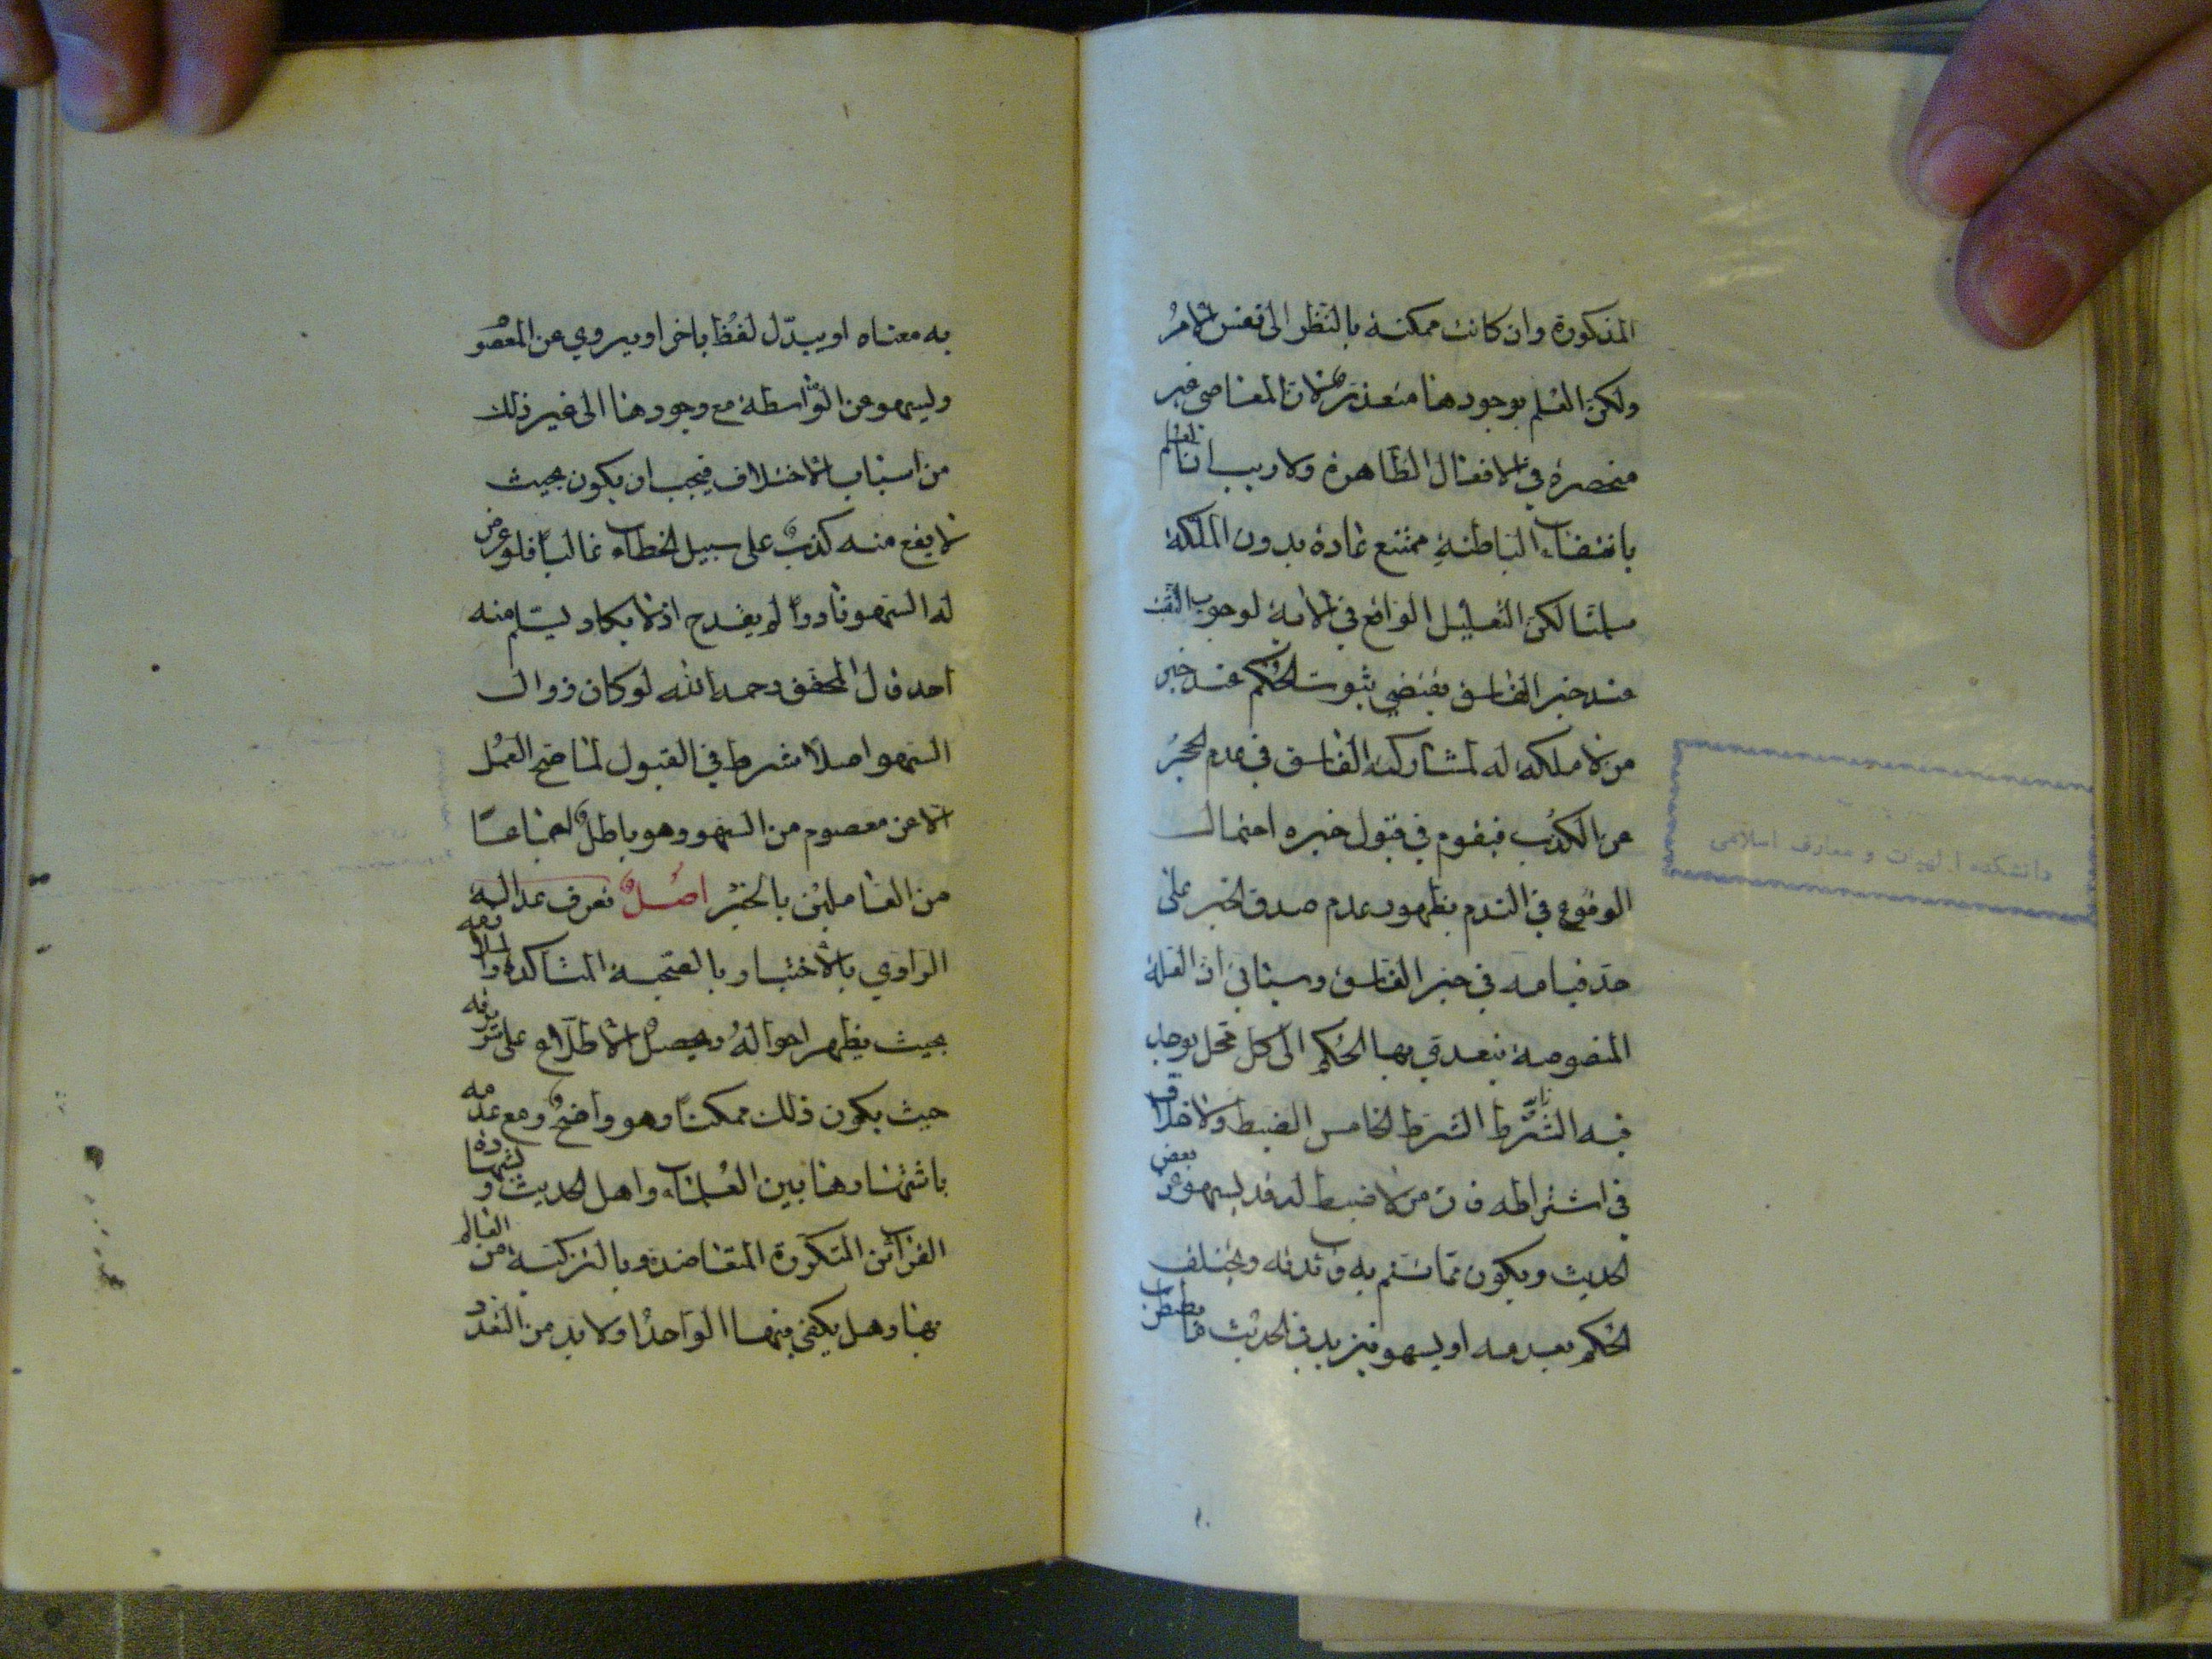 المذكورة وان كانت ممكنة بالنظر الى نفس الامر
ولكن العلم بوجودها متعذر لان المعاصي غير
منحصرة في الافعال الظاهرة ولا ريب ان العلم
بانتفاء الباطنة ممتنع عادة بدون الملكة
سلمنا لكن التعليل الواقع في الاية لوجوب التثبت
عند خبر الفاسق يقتضي ثبوت الحكم عند خبر
من لا ملكة له لمشاركة الفاسق في عدم الحجز
عن الكذب فيقوم في قبول خبره احتمال
الوقوع في الندم بظهور عدم صدق الخبر على
حد قيامه في خبر الفاسق وسياتي ان العلة
المنصوصة يتعدى بها الحكم الى كل محل يوجد
فيه الشرط الشرط الخامس الضبط ولا خلاف
في اشتراطه فان من لا ضبط له قد يسهو عن بعض
الحديث ويكون مما يتم به فائدته ويختلف
الحكم بعدمه او يسهو فيزيد في الحديث ما يضطرب
دانشكده الهيات و معارف اسلامى
به معناه او يبدّل لفظا باخر او يروي عن المعصو
وليسهو عن الواسطة مع وجودها الى غير ذلك
من اسباب الاختلاف فيجب ان يكون بحيث
لا يقع منه كذب على سبيل الخطاء غالبا فلو عرض
له السهو نادرا لم يقدح اذ لا يكاد يسلم منه
احد قال المحقق رحمه الله لو كان زوال
السهو اصلا شرط في القبول لما صح العمل
الا عن معصوم من السهو وهو باطل اجماعا
من العاملين بالخبر اصل تعرف عدالة
الراوي بالاختبار بالصحبة المتاكدة والملازمة
بحيث يظهر احواله ويحصل الاطلاع على سريرته
حيث يكون ذلك ممكنا وهو واضح ومع عدمه
باشتهارها بين العلماء واهل الحديث وشهادة
القرائن المتكررة المتعاضدة وبالتزكية من العالم
بها وهل يكفي فيها الواحد اولا بد من التعدد